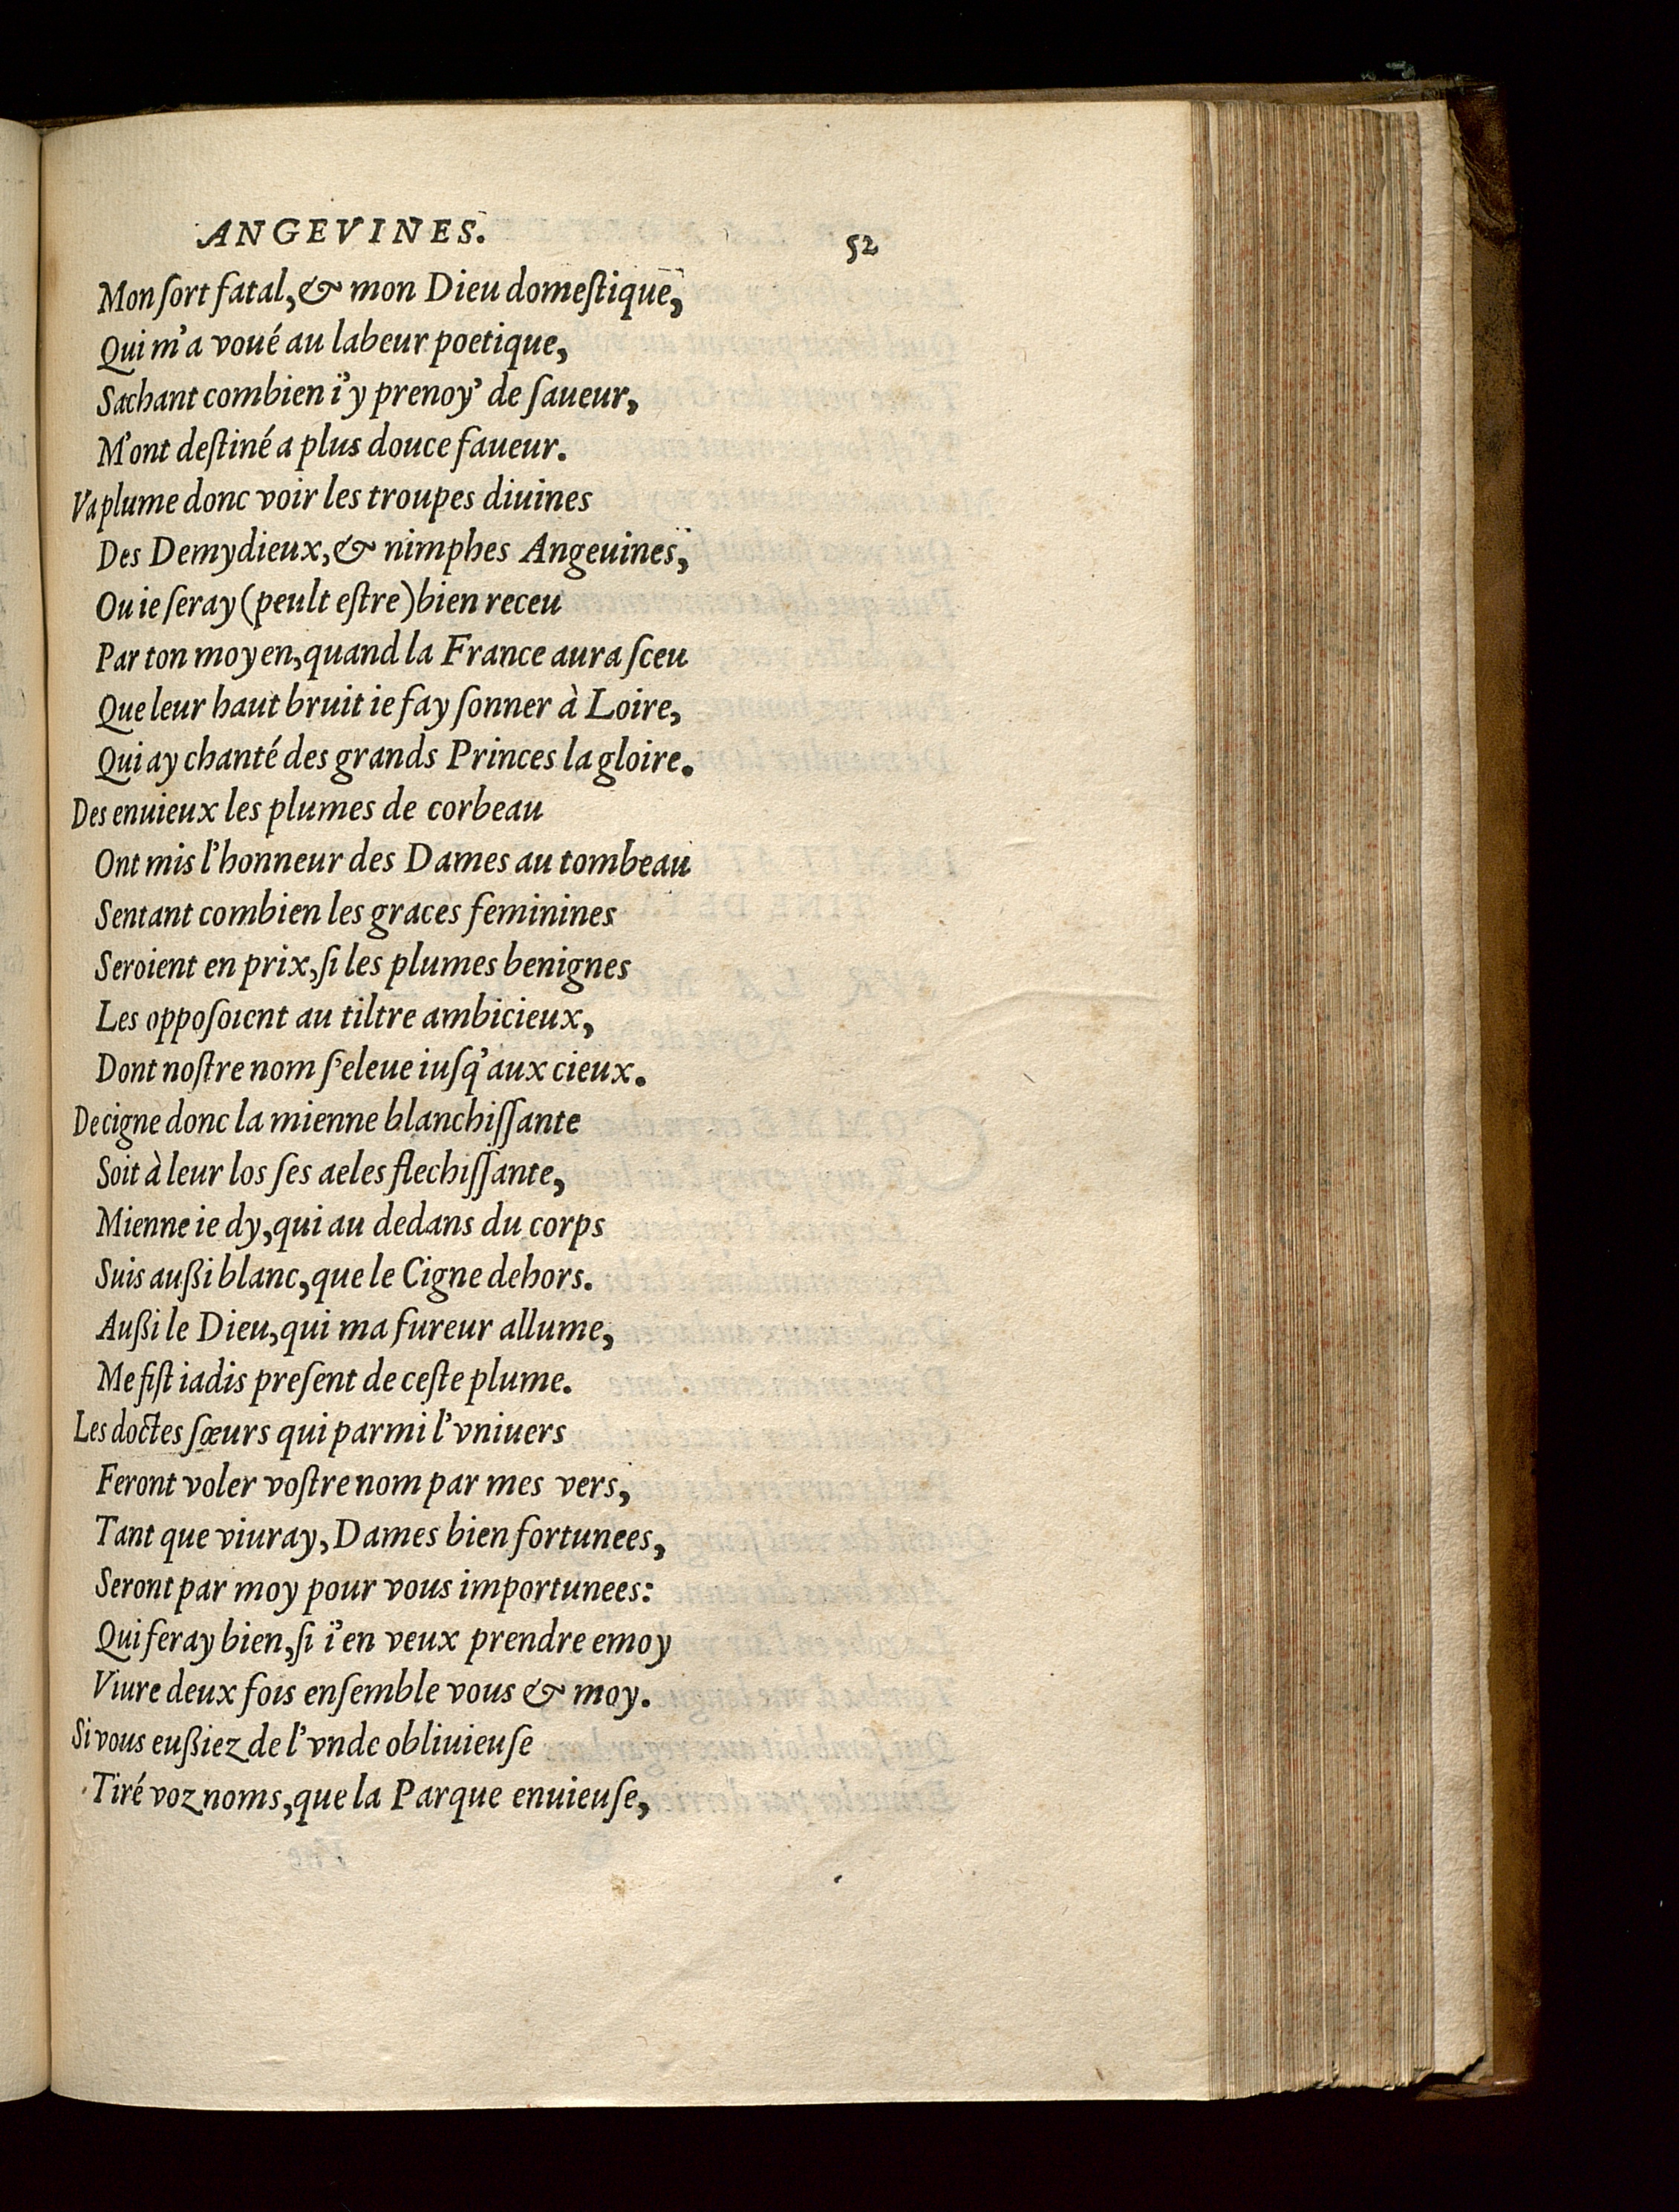 ANGEVINES. 52
Mon ſort fatal, & mon Dieu domeſtique,
Qui m'a voué au labeur poetique,
Sachant combien i'y prenoy' de ſaueur,
M'ont deſtiné a plus douce faueur.
Va plume donc voir les troupes diuines
Des Demydieux, & nimphes Angeuines,
Ou ie ſeray (peult eſtre) bien receu
Par ton moyen, quand la France aura ſceu
Que leur haut bruit ie fay ſonner à Loire,
Qui ay chanté des grands Princes la gloire.
Des enuieux les plumes de corbeau
Ont mis l'honneur des Dames au tombeau
Sentant combien les graces feminines
Seroient en prix, ſi les plumes benignes
Les oppoſoient au tiltre ambicieux,
Dont noſtre nom ſ'eleue iuſq'aux cieux.
De cigne donc la mienne blanchiſſante
Soit à leur los ſes aeles flechiſſante,
Mienne ie dy, qui au dedans du corps
Suis außi blanc, que le Cigne dehors.
Außi le Dieu, qui ma fureur allume,
Me fiſt iadis preſent de ceſte plume.
Les doctes ſœurs qui parmi l'vniuers
Feront voler voſtre nom par mes vers,
Tant que viuray, Dames bien fortunees,
Seront par moy pour vous importunees:
Qui feray bien, ſi i'en veux prendre emoy
Viure deux fois enſemble vous & moy.
Si vous eußiez de l'vnde obliuieuſe
Tiré voz noms, que la Parque enuieuſe,